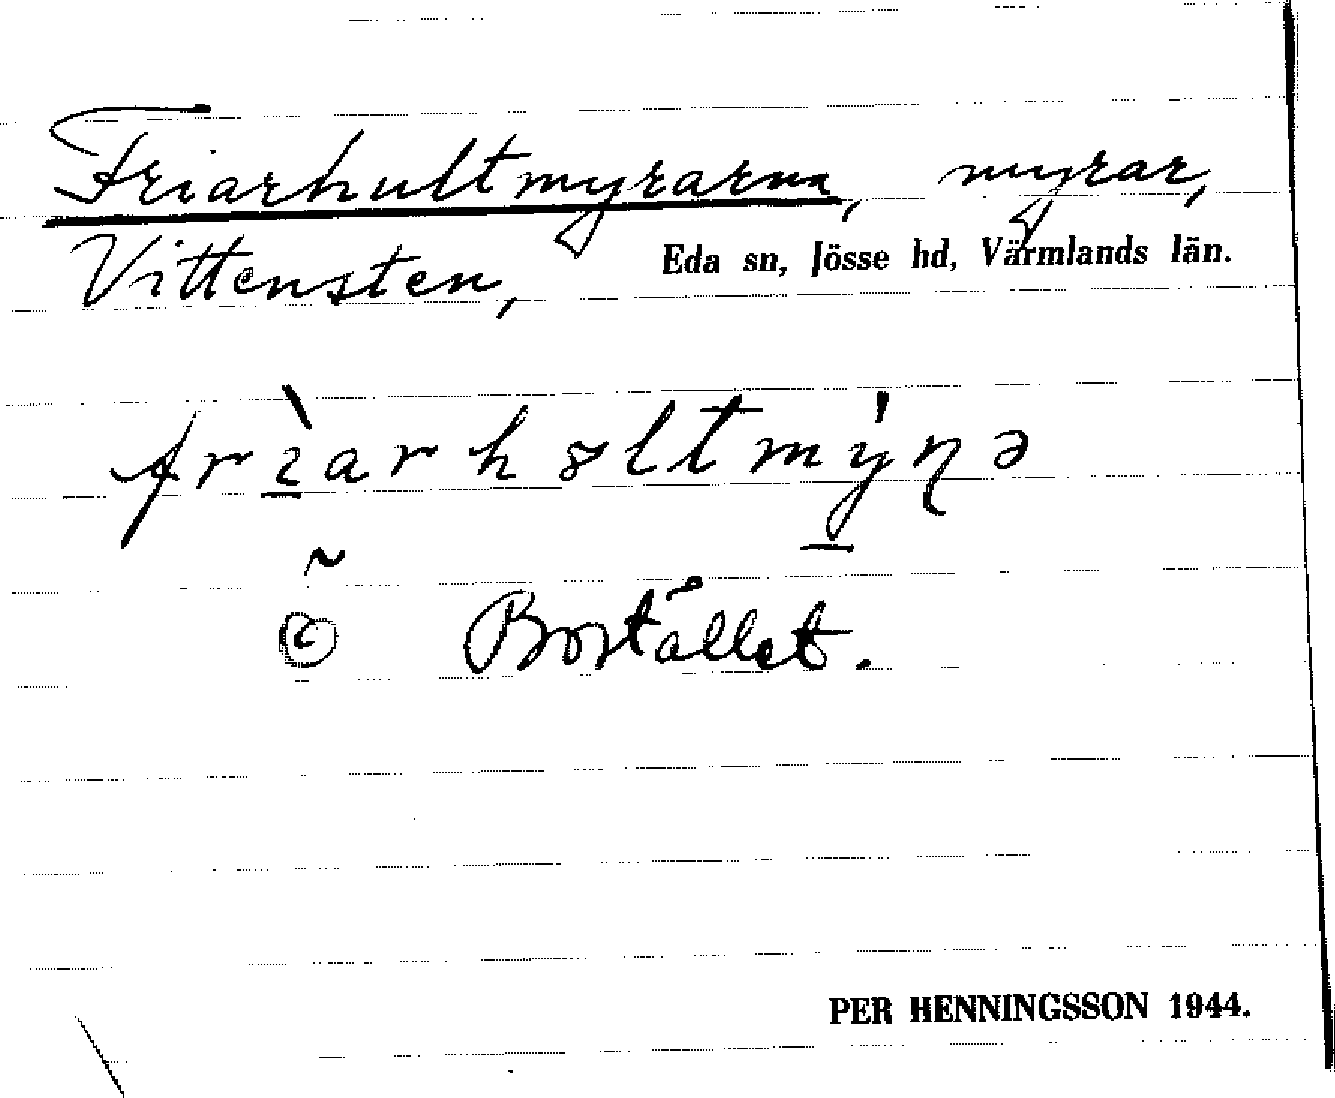 Friarhultmyrarna, myrar,
Vittensten, Eda sn, Jösse hd, Värmlands län.
frı̀arhɞltmýɳə
Bostället.
PER HENNINGSSON 1944.